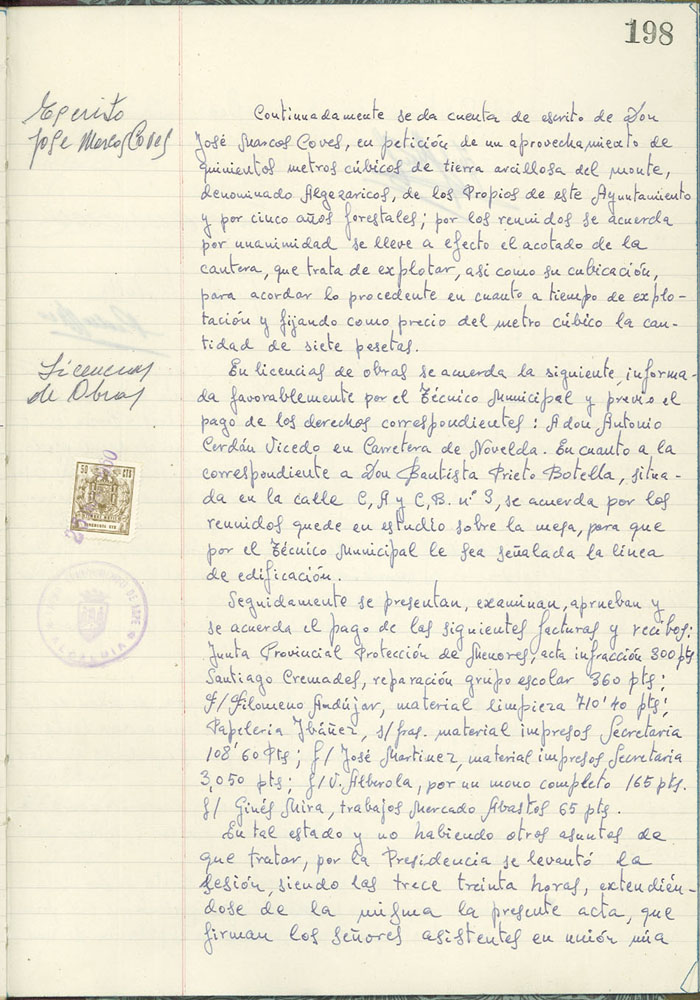 198
Escrito
José Marcos Coves
Continuadamente se da cuenta de escrito de Don
José Marcos Coves, en petición de un aprovechamiento de
quinientos metros cúbicos de tierra arcillosa del monte,
denominado Algezaricos, de los Propios de este Ayuntamiento
y por cinco años forestales; por los reunidos se acuerda
por unanimidad se lleve a efecto el acotado de la
cantera, que trata de explotar, asi como su cubicación,
para acordar lo procedente en cuanto a tiempo de explo-
tación y fijando como precio del metro cúbico la can-
tidad de siete pesetas.
Licencias
de Obras
En licencias de obras se acuerda la siguiente, informa-
da favorablemente por el Técnico Municipal y previo el
pago de los derechos correspondientes: A don Antonio
Cerdán Vicedo en Carretera de Novelda. En cuanto a la
correspondiente a Don Bautista Prieto Botella, situa-
da en la calle C, A y C, B. nº 3, se acuerda por los
reunidos quede en estudio sobre la mesa, para que
por el Técnico Municipal le sea señalada la línea
de edificación.
50 CTS
Seguidamente se presentan, examinan, aprueban y
se acuerda el pago de las siguientes facturas y recibos:
Junta Provincial Protección de Menores, acta infracción 300 pts
Santiago Cremades, reparación grupo escolar 360 pts;
f/ Filomeno Andújar, material limpieza 710'40 pts;
Papelería Ibáñez, s/ fras. material impresos Secretaria
108'60 Pts; f/ José Martinez, material impresos Secretaria
3,050 pts; f/ V. Alberola, por un mono completo 165 pts.
f/ Ginés Mira, trabajos Mercado Abastos 65 pts.
En tal estado y no habiendo otros asuntos de
que tratar, por la Presidencia se levantó la
sesión, siendo las trece treinta horas, extendién-
dose de la misma la presente acta, que
firman los señores asistentes en unión mia